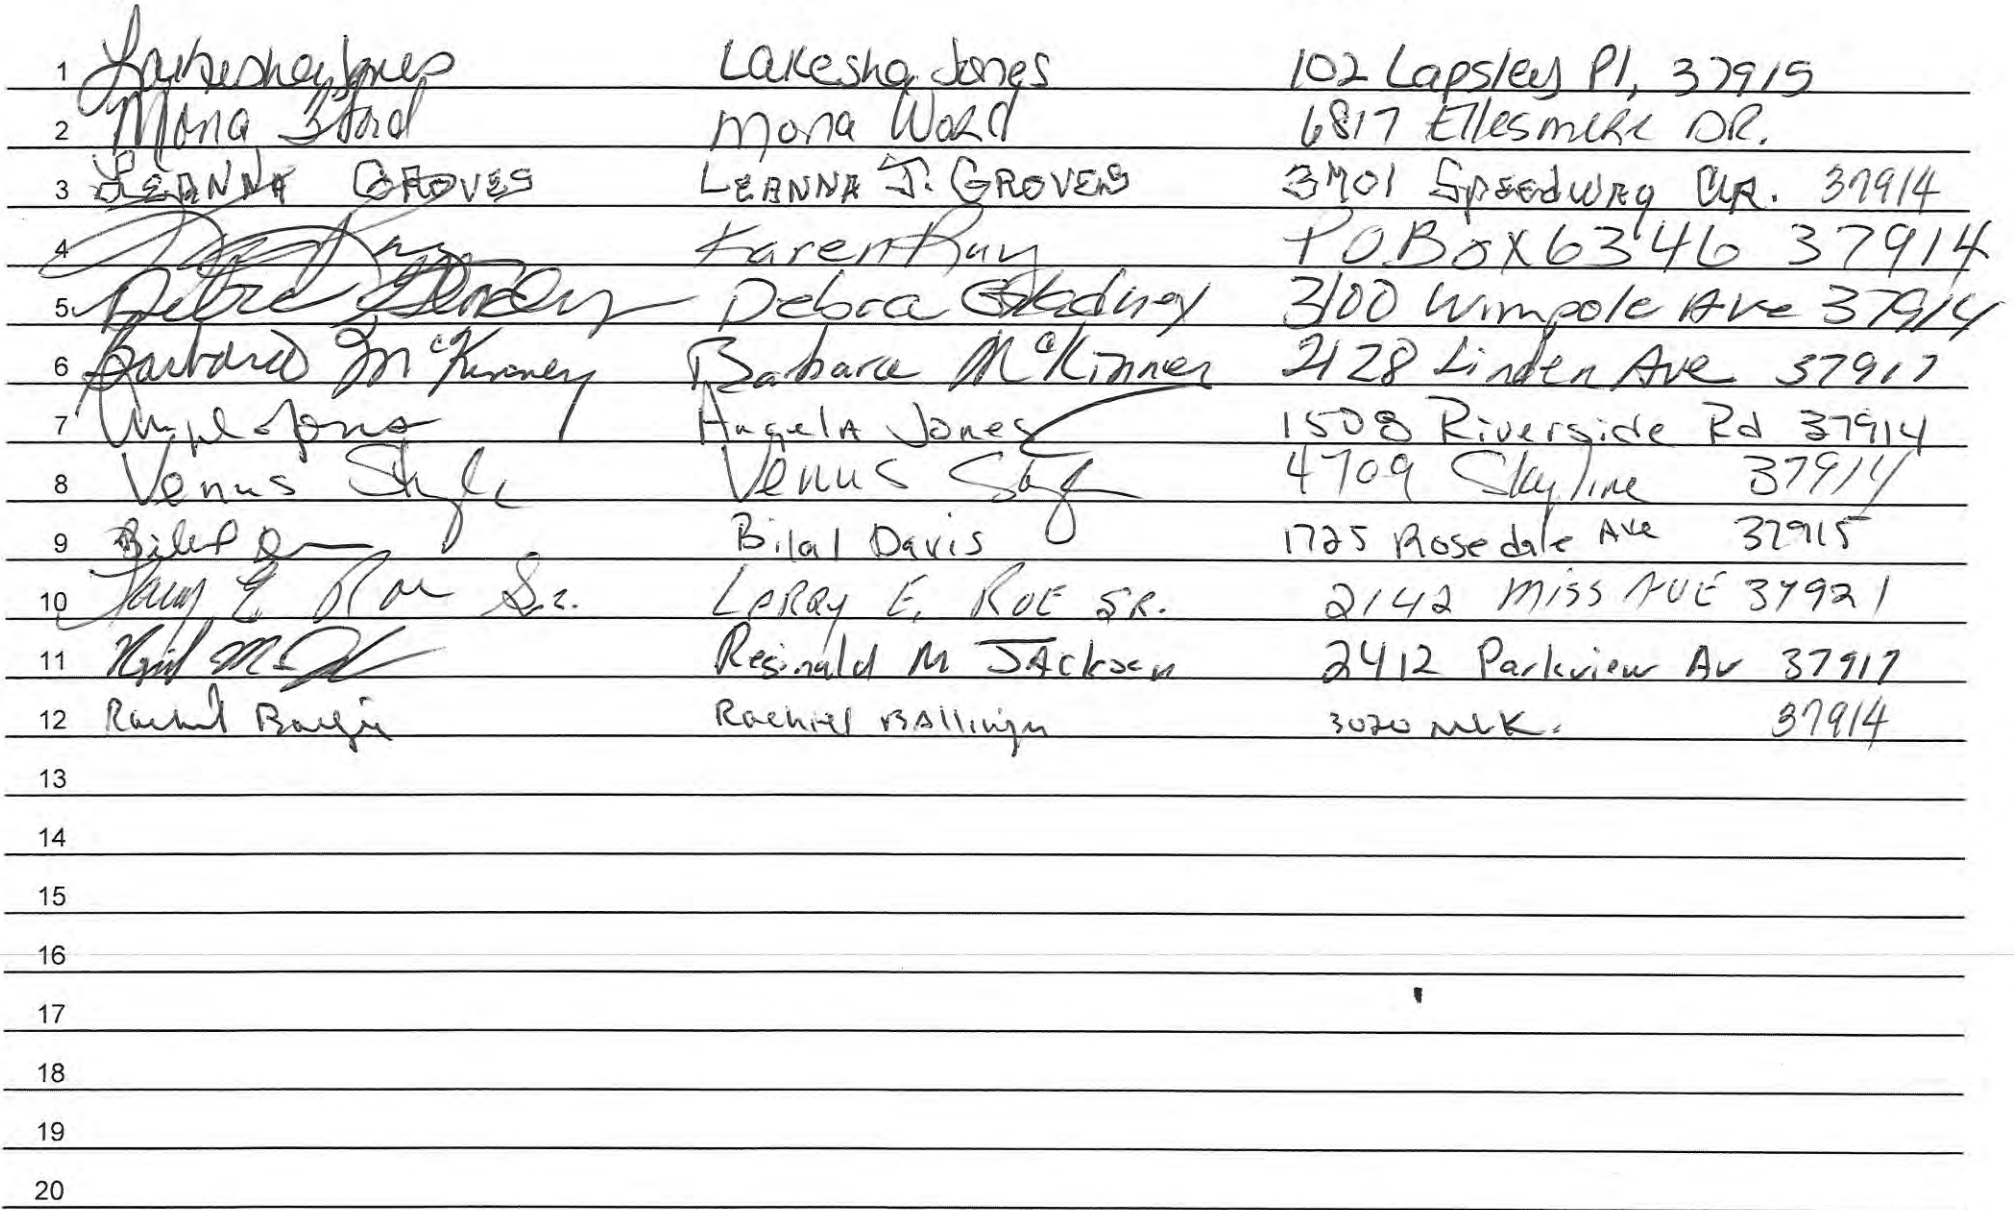 1 Lakesha Jones Lakesha Jones 102 Lapsley Pl, 37915
2 Mona Mona Ward 6817 Ellesmere DR.
3 LEANNA GROVES LEANNA J. GROVES 3701 Speedway CIR. 37914
4 Karen Ray P.O. Box 6346 37914
5 Debra Debra Gladney 3100 Wimpole Ave 37914
6 Barbara McKinney Barbara McKinney 2128 Linden Ave 37917
7 Jones Angela Jones 1508 Riverside Rd 37914
8 Venus Venus 4709 Skyline 37914
9 Bilal Bilal Davis 1725 Rosedale Ave 37915
10 E Roe Sr. LeRoy E. ROE SR. 2142 MISS AVE 37921
11 M Reginald M JACkson 2412 Parkview Av 37917
12 Rachiel Rachiel BAllinger 3020 MLK. 37914
13
14
15
16
17
18
19
20